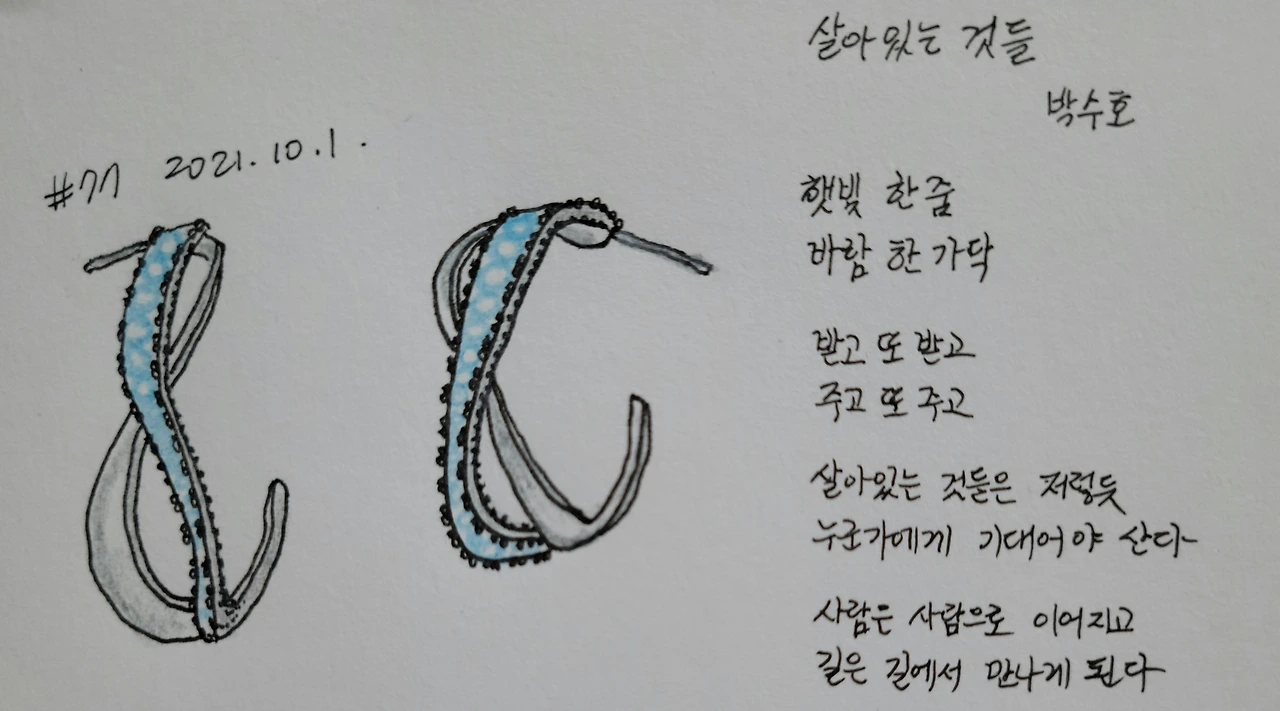 #77 2021.10.1.
살아있는 것들
박수호
햇빛 한 줌
바람 한 가닥
받고 또 받고
주고 또 주고
살아있는 것들은 저렇듯
누군가에게 기대어야 산다
사람은 사람으로 이어지고
길은 길에서 만나게 된다